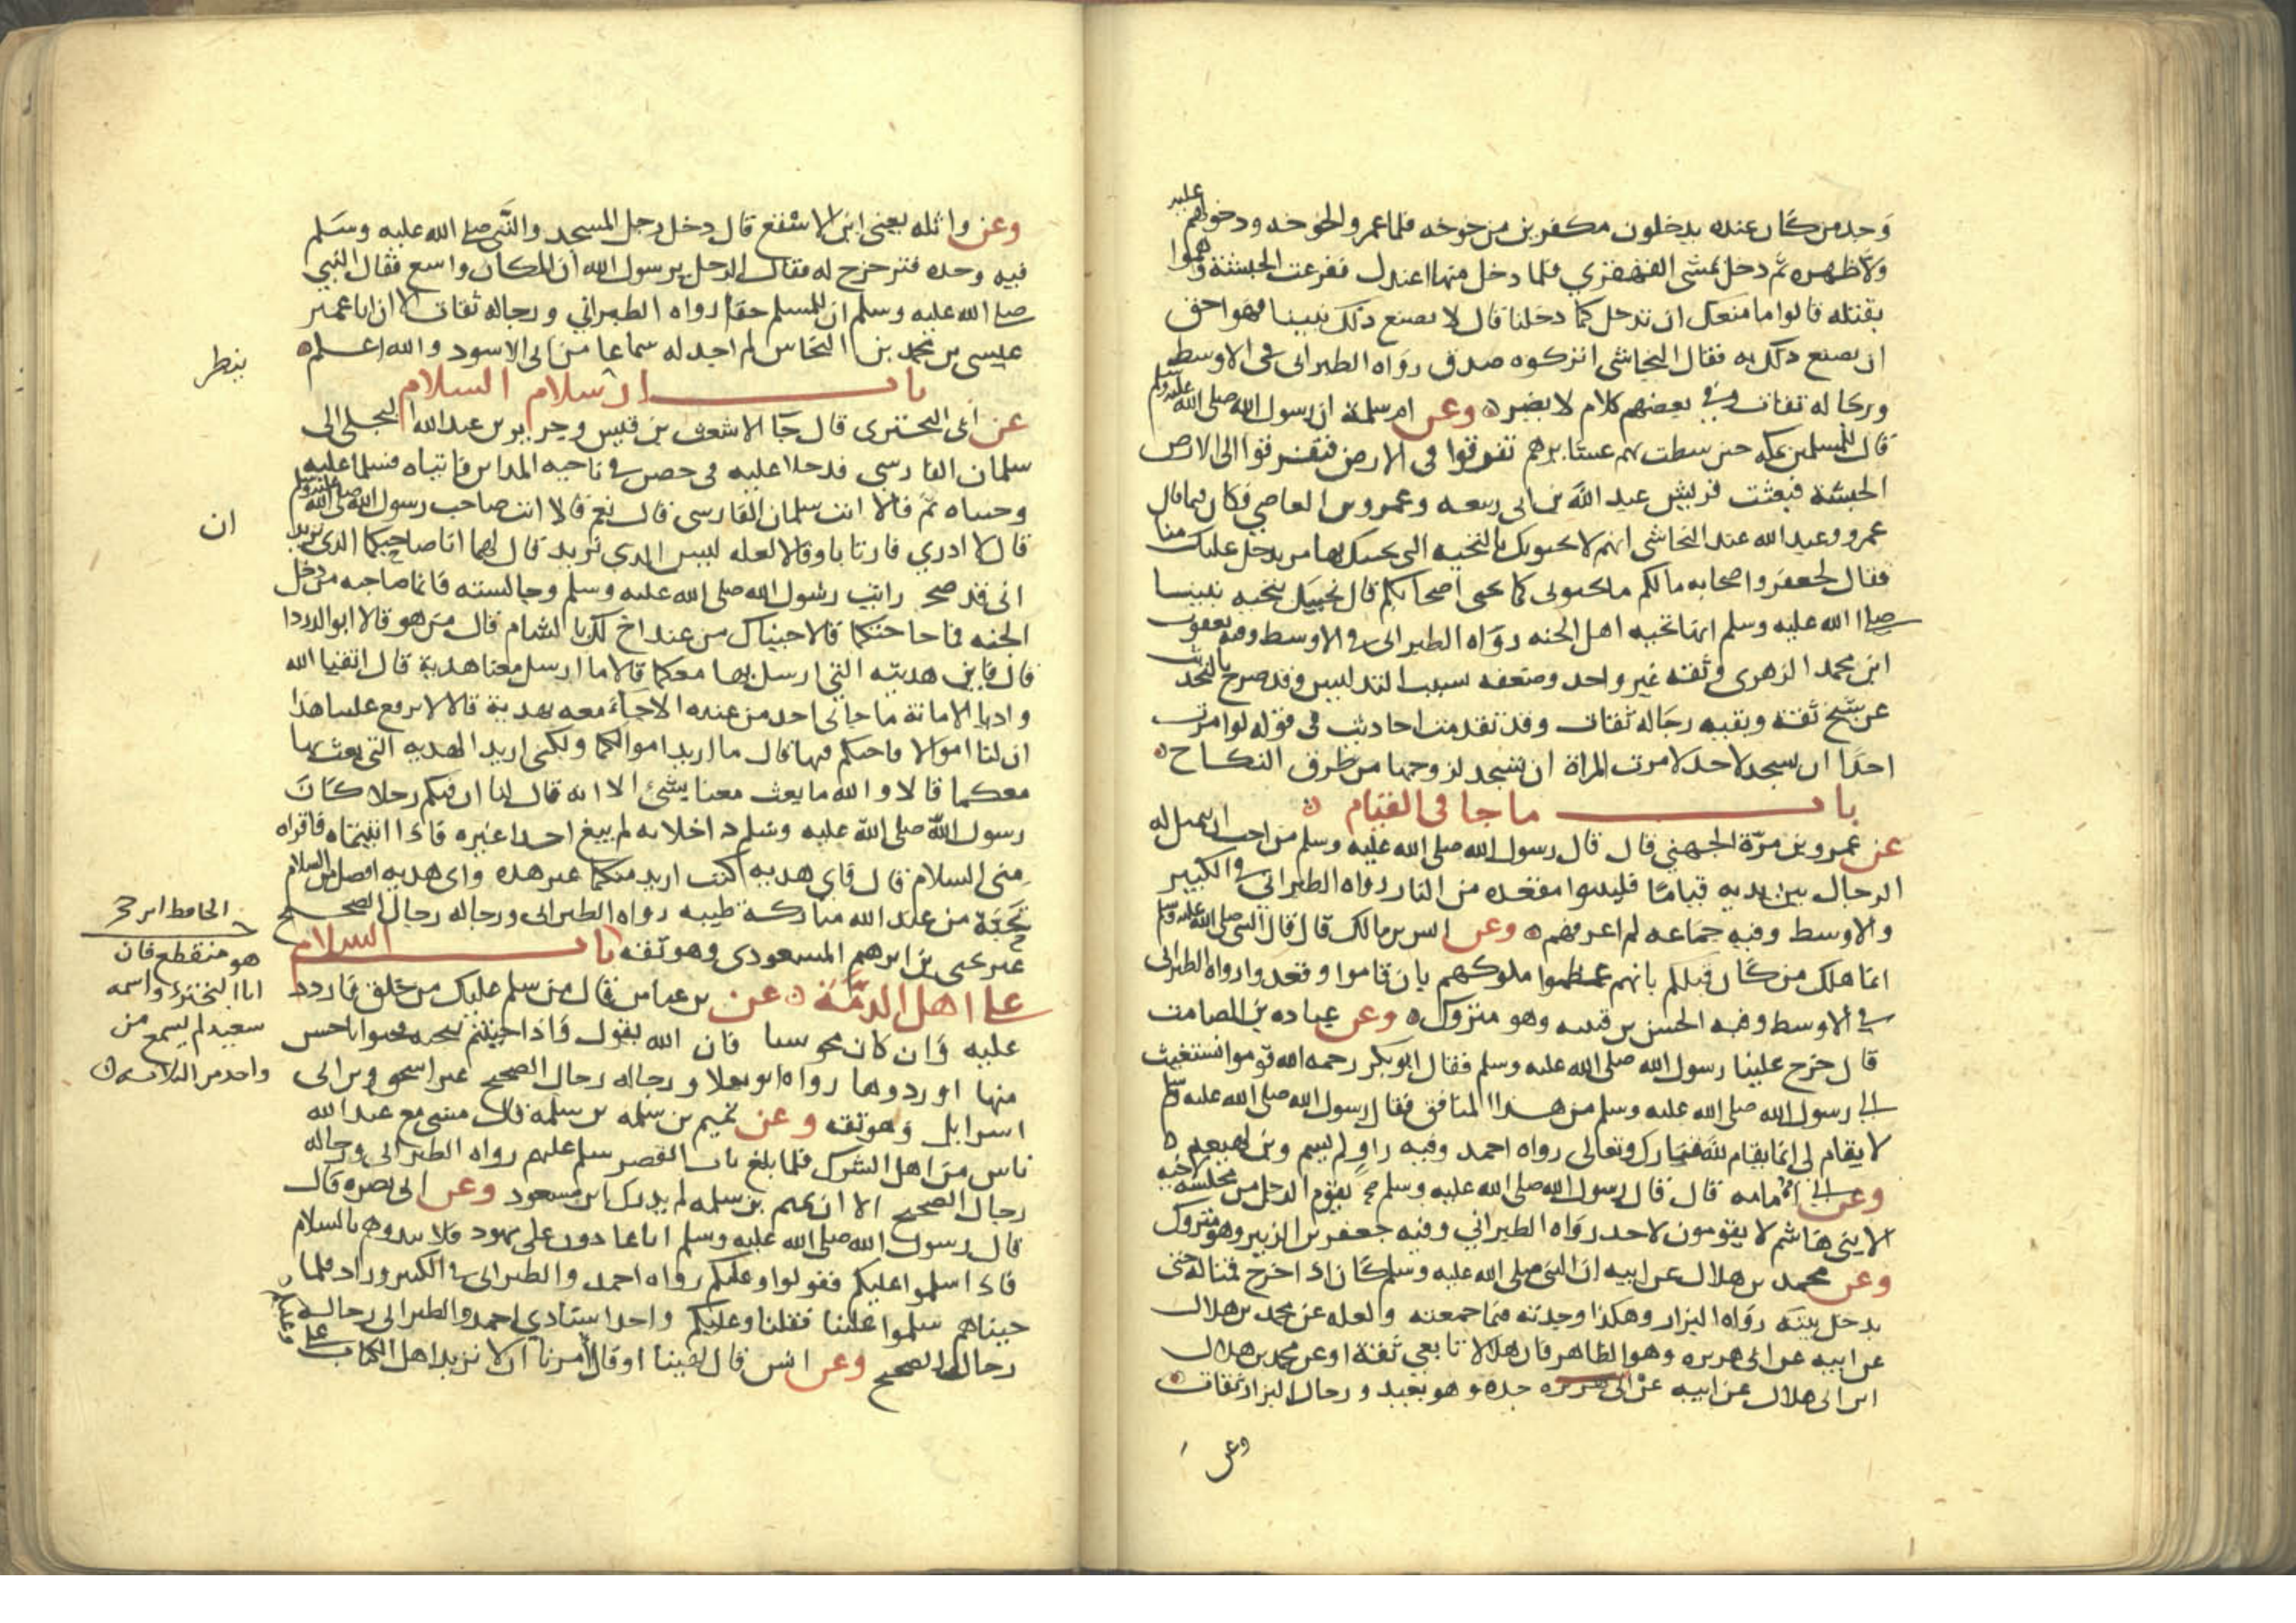 عليه
وجد من كان عنده يدخلون مكفرين من خوخه فلما عمرو الخوخه ودخولهم
ولا ظهره ثم دخل يمشي القهقري فلما دخل منها اعتدل ففزعت الحبشة وهموا
بقتله قالوا ما منعك ان تدخل كما دخلنا قال لا نصنع ذلك بنبينا فهو احق
ان نصنع ذلك به فقال النجاشي اتركوه صدق رواه الطبراني في الاوسط
ورجاله ثقات وفي بعضهم كلام لا يضر وعن ام سلمة ان رسول الله صلى الله عليه وسلم
قال للمسلمين بمكه حين سطت بهم عشايرهم تفرقوا في الارض فتفرقوا الى الارض
الحبشة فبعثت قريش عبد الله بن ابي ربيعه وعمرو بن العاصي فكان فيما قال
عمرو وعبد الله عند النجاشي انهم لا يحيونك بالتحيه التي يحييك بها من يدخل عليك منا
فقال لجعفر واصحابه مالكم ما تحيوني كما يحيي اصحابكم قال نحييك بتحيه نبينا
صلى الله عليه وسلم انها تحيه اهل الجنه رواه الطبراني في الاوسط وفيه يعقوب
ابن محمد الزهري وثقه غير واحد وضعفه بسبب التدليس وقد صرح بالتحديث
عن شيخ ثقة وبقيه رجاله ثقات وقد تقدمت احاديث في قوله لو امرت
احدا ان يسجد لاحد لامرت المراة ان تسجد لزوجها من طرق النكاح
باب ما جا في القيام
عن عمرو بن مرة الجهني قال قال رسول الله صلى الله عليه وسلم من احب ان يمثل له
الرجال بين يديه قياما فليتبوا مقعده من النار رواه الطبراني في الكبير
والاوسط وفيه جماعه لم اعرفهم وعن انس بن مالك قال قال النبي صلى الله عليه وسلم
انما هلك من كان قبلكم بانهم عظموا ملوكهم بان قاموا وقعدوا رواه الطبراني
في الاوسط وفيه الحسن بن قتيبه وهو متروك وعن عباده بن الصامت
قال خرج علينا رسول الله صلى الله عليه وسلم فقال ابو بكر رحمه الله قوموا نستغيث
الى رسول الله صلى الله عليه وسلم من هذا المنافق فقال رسول الله صلى الله عليه وسلم
لا يقام لي انما يقام لله تبارك وتعالى رواه احمد وفيه راو لم يسم وبن لهيعه
وعن ابي امامه قال قال رسول الله صلى الله عليه وسلم يقوم الرجل من مجلسه لاخيه
الا بني هاشم لا يقومون لاحد رواه الطبراني وفيه جعفر بن الزبير وهو متروك
وعن محمد بن هلال عن ابيه ان النبي صلى الله عليه وسلم كان اذا خرج قمنا له حتى
يدخل بيته رواه البزار وهكذا وجدته فيما جمعته والعله عن محمد بن هلال
عن ابيه عن ابي هريره وهو الظاهر فان هلالا تابعي ثقة او عن محمد بن هلال
ابن ابي هلال عن ابيه عن ابي هريره جده وهو بعيد ورجال البزار ثقات
وعن
وعن واثله يعني ابن الاسقع قال دخل رجل المسجد والنبي صلى الله عليه وسلم
فيه وحده فتزحزح له فقال الرجل يرسول الله ان المكان واسع فقال النبي
صلى الله عليه وسلم ان للمسلم حقا رواه الطبراني ورجاله ثقات الا ان ابا عمير
عيسى بن محمد بن النحاس لم اجد له سماعا من ابي الاسود والله اعلم
ينظر
باب ارسلام السلام
عن ابي البختري قال جا الاشعث بن قيس وجرير بن عبد الله البجلي الى
سلمان الفارسي فدخلا عليه في حصن في ناحيه المداين فاتياه فسلما عليه
وحيياه ثم قالا انت سلمان الفارسي قال نعم قالا انت صاحب رسول الله صلى الله عليه وسلم
ان
قال لا ادري فارتابا وقالا لعله ليس الذي نريد قال لهما انا صاحبكما الذي تريدان
اني قد صح رايت رسول الله صلى الله عليه وسلم وجالسته فانما صاحبه من دخل
الجنه فما حاجتكما قالا جيناك من عند اخ لك بالشام قال من هو قالا ابو الدردا
قال فاين هديته التي ارسل بها معكما قالا ما ارسل معنا هدية قال اتقيا الله
واديا الامانة ما جاني احد من عنده الا جاء معه بهدية قالا لا ترفع علينا هذا
ان لنا اموالا فاحتكم فيها قال ما اريد اموالكما ولكني اريد الهديه التي بعث بها
معكما قالا والله ما بعث معنا بشئ الا انه قال لنا ان فيكم رجلا كان
رسول الله صلى الله عليه وسلم اذا خلا به لم يبغ احدا غيره فاذا اتيتماه فاقراه
مني السلام قال فاي هديه كنت اريد منكما غير هذه واي هديه افضل من السلام
تحية من عند الله مباركة طيبه رواه الطبراني ورجاله رجال الصحيح
غير يحيى بن ابرهيم المسعودي وهو ثقه باب السلام
الحافظ ابن حجر
هو منقطع فان
ابا البختري واسمه
سعيد لم يسمع من
واحد من الثلاثه
على اهل الذمة عن بن عباس قال من سلم عليك من خلق فاردد
عليه وان كان مجوسيا فان الله يقول فاذا حييتم بتحيه فحيوا باحسن
منها او ردوها رواه ابو يعلا ورجاله رجال الصحيح غير اسحق بن ابي
اسرايل وهو ثقه وعن تميم بن سلمه بن سلمة قال مشى مع عبد الله
ناس من اهل الشرك فلما بلغ باب القصر سلم عليهم رواه الطبراني ورجاله
رجال الصحيح الا ان تميم بن سلمه لم يدرك ابن مسعود وعن ابي بصره قال
قال رسول الله صلى الله عليه وسلم انا غادون على يهود فلا تبدوهم بالسلام
فاذا سلموا عليكم فقولوا وعليكم رواه احمد والطبراني في الكبير وزاد فلما
جيناهم سلموا علينا فقلنا وعليكم واحد اسنادي احمد والطبراني رجاله
رجال الصحيح وعن انس قال نهينا او قال امرنا ان لا نزيد اهل الكتاب على
وعليكم